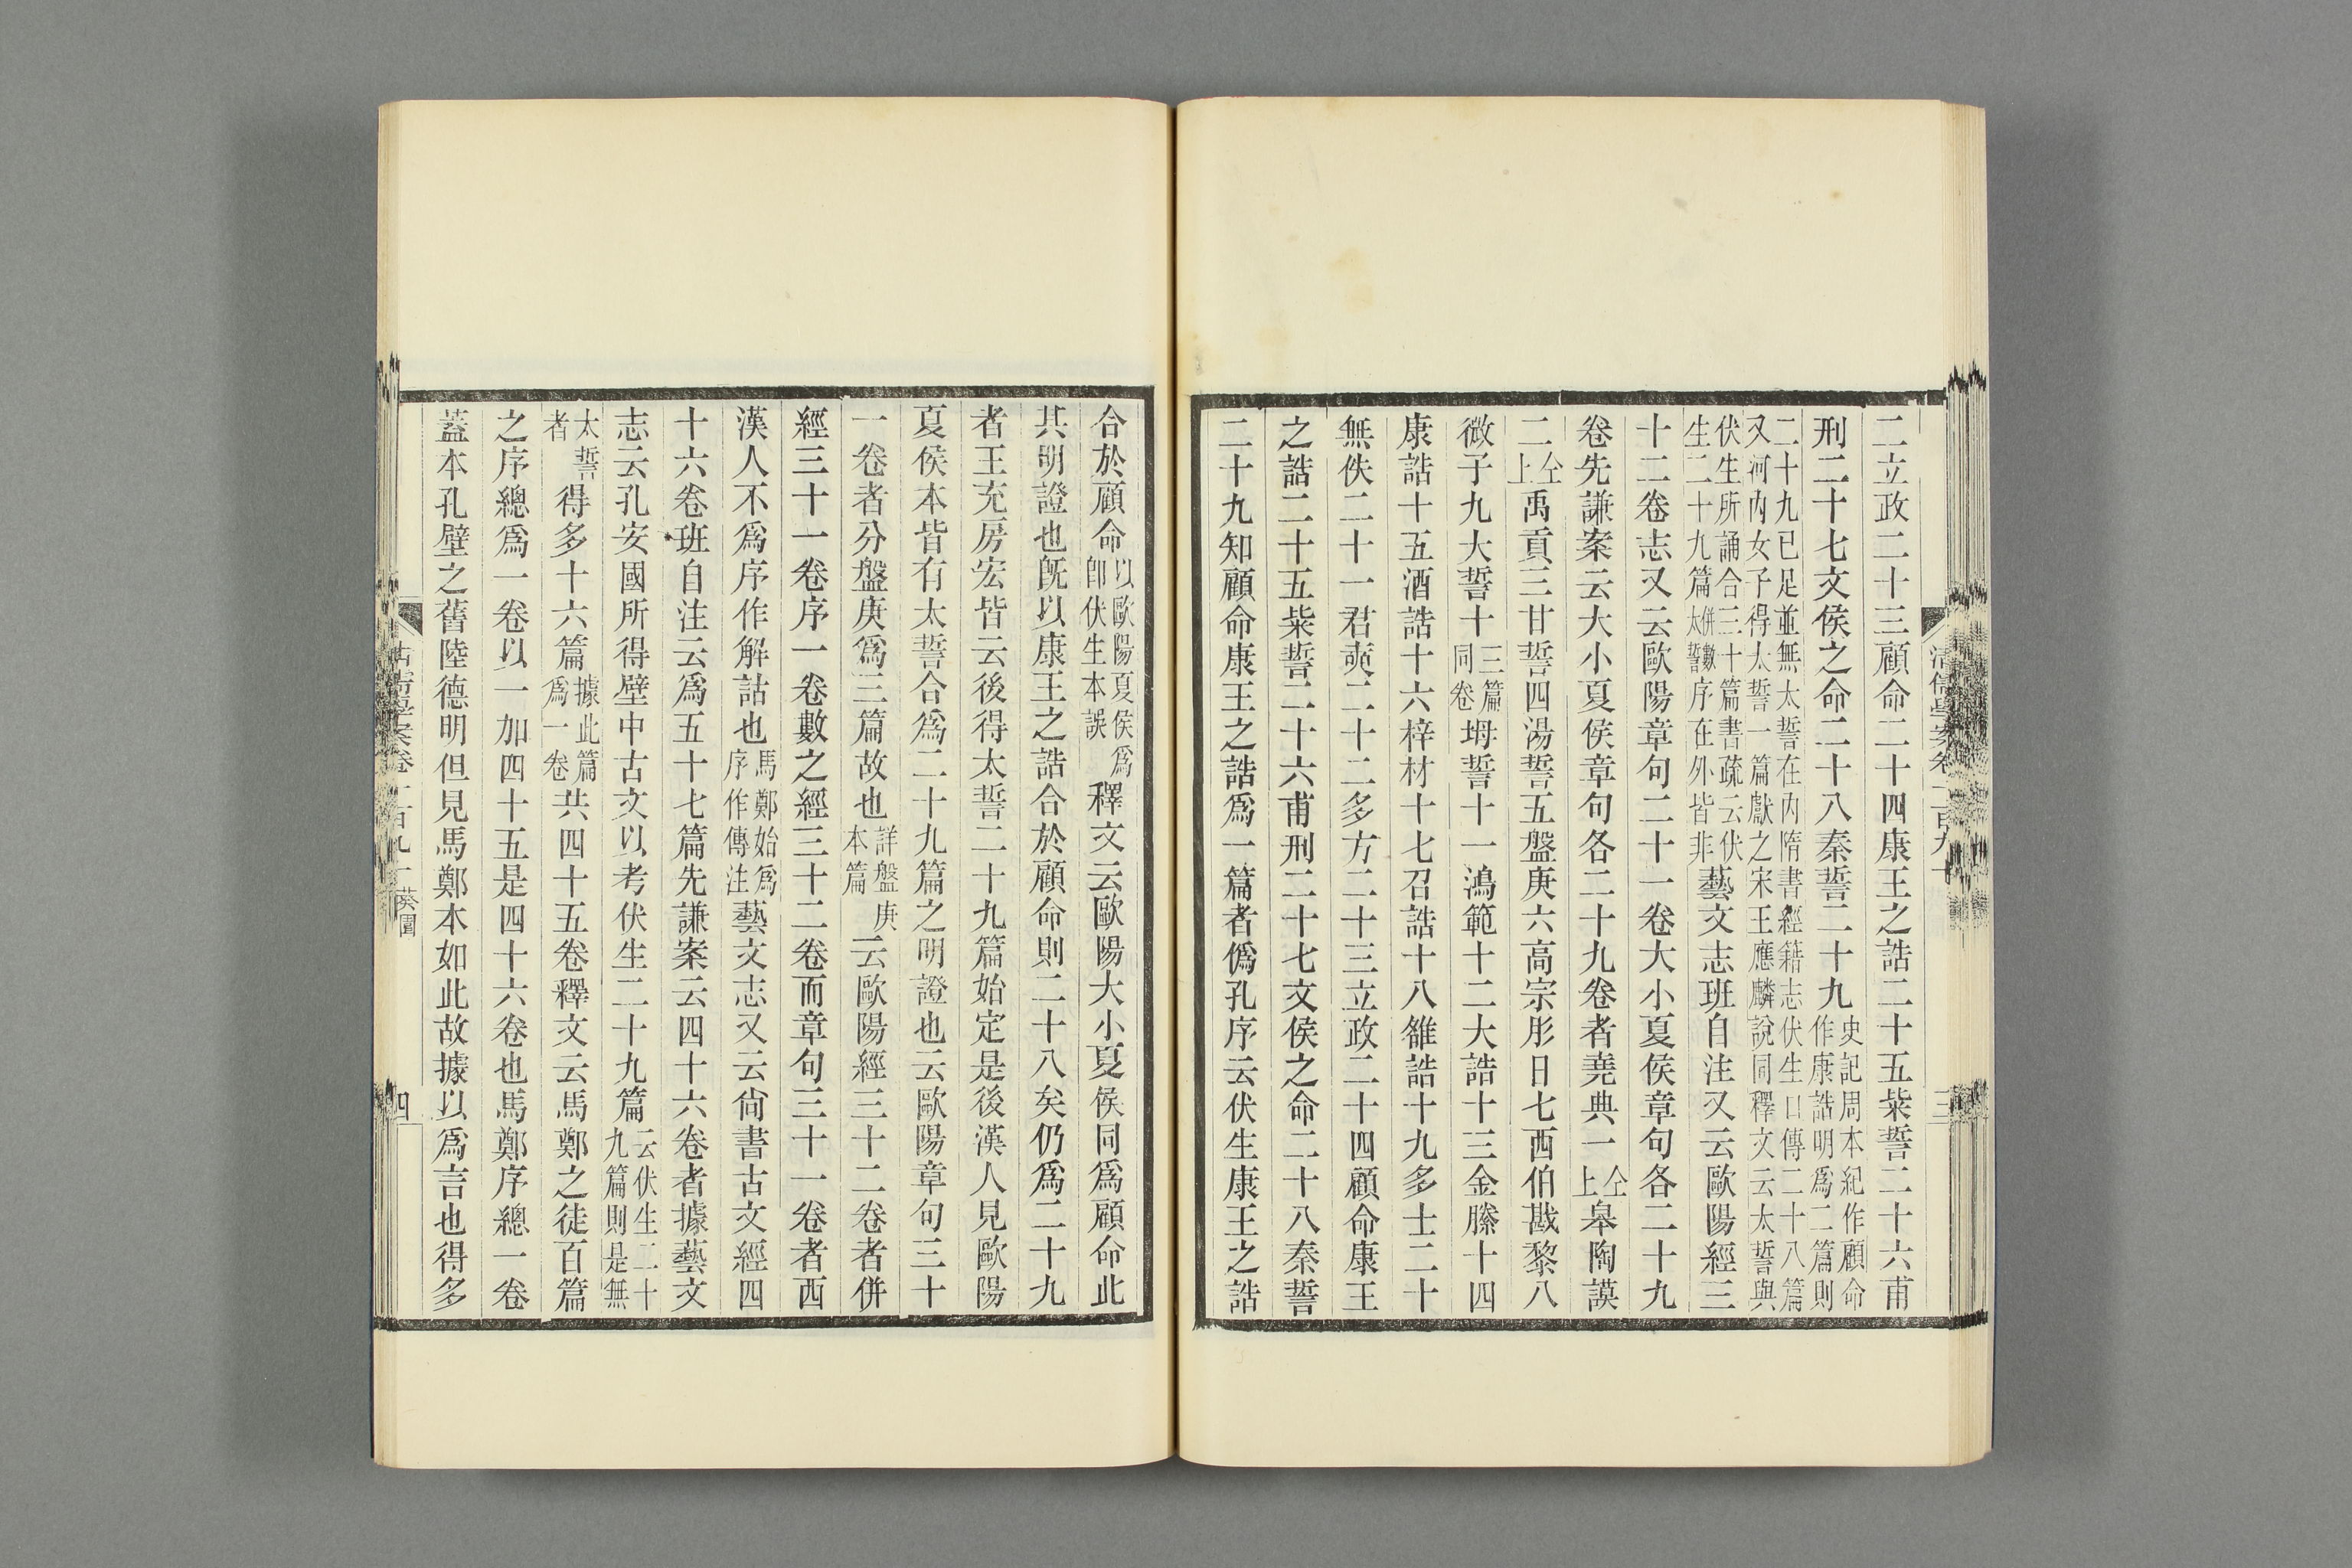 二立政二十三顧命二十四康王之誥二十五粊誓二十六甫
刑二十七文侯之命二十八秦誓二十九史記周本紀作顧命作康誥明爲二篇則
二十九已足並無太誓在內隋書經籍志伏生口傳二十八篇又河內女子得太誓一篇獻之宋王應麟說同釋文云太誓與
伏生所誦合三十篇書疏云伏生二十九篇併數太誓序在外皆非藝文志班自注又云歐陽經三
十二卷志又云歐陽章句二十一卷大小夏侯章句各二十九
卷先謙案云大小夏侯章句各二十九卷者堯典一仝上皋陶謨
二仝上禹貢三甘誓四湯誓五盤庚六高宗肜日七西伯戡黎八
微子九大誓十三篇同卷坶誓十一鴻範十二大誥十三金縢十四
康誥十五酒誥十六梓材十七召誥十八雒誥十九多士二十
無佚二十一君奭二十二多方二十三立政二十四顧命康王
之誥二十五粊誓二十六甫刑二十七文侯之命二十八秦誓
二十九知顧命康王之誥爲一篇者僞孔序云伏生康王之誥
合於顧命以歐陽夏侯爲卽伏生本誤釋文云歐陽大小夏侯同爲顧命此
其明證也旣以康王之誥合於顧命則二十八矣仍爲二十九
者王充房宏皆云後得太誓二十九篇始定是後漢人見歐陽
夏侯本皆有太誓合爲二十九篇之明證也云歐陽章句三十
一卷者分盤庚爲三篇故也詳盤庚本篇云歐陽經三十二卷者併
經三十一卷序一卷數之經三十二卷而章句三十一卷者西
漢人不爲序作解詁也馬鄭始爲序作傳注藝文志又云尙書古文經四
十六卷班自注云爲五十七篇先謙案云四十六卷者據藝文
志云孔安國所得壁中古文以考伏生二十九篇云伏生二十九篇則是無
太誓者得多十六篇據此篇爲一卷共四十五卷釋文云馬鄭之徒百篇
之序總爲一卷以一加四十五是四十六卷也馬鄭序總一卷
蓋本孔壁之舊陸德明但見馬鄭本如此故據以爲言也得多
四